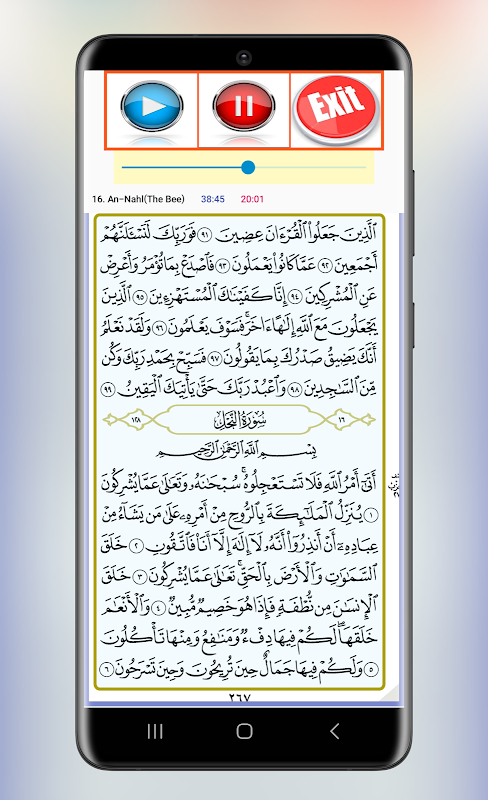 Exit
16. An-Nahl(The Bee) 38:45 20:01
ٱلَّذِينَ جَعَلُوا۟ ٱلْقُرْءَانَ عِضِينَ ٩١ فَوَرَبِّكَ لَنَسْـَٔلَنَّهُمْ
أَجْمَعِينَ ٩٢ عَمَّا كَانُوا۟ يَعْمَلُونَ ٩٣ فَٱصْدَعْ بِمَا تُؤْمَرُ وَأَعْرِضْ
عَنِ ٱلْمُشْرِكِينَ ٩٤ إِنَّا كَفَيْنَٰكَ ٱلْمُسْتَهْزِءِينَ ٩٥ ٱلَّذِينَ
يَجْعَلُونَ مَعَ ٱللَّهِ إِلَٰهًا ءَاخَرَ ۚ فَسَوْفَ يَعْلَمُونَ ٩٦ وَلَقَدْ نَعْلَمُ
أَنَّكَ يَضِيقُ صَدْرُكَ بِمَا يَقُولُونَ ٩٧ فَسَبِّحْ بِحَمْدِ رَبِّكَ وَكُن
مِّنَ ٱلسَّٰجِدِينَ ٩٨ وَٱعْبُدْ رَبَّكَ حَتَّىٰ يَأْتِيَكَ ٱلْيَقِينُ ٩٩
١٦ سُورَةُ ٱلنَّحْلِ ١٢٨
بِسْمِ ٱللَّهِ ٱلرَّحْمَٰنِ ٱلرَّحِيمِ
أَتَىٰٓ أَمْرُ ٱللَّهِ فَلَا تَسْتَعْجِلُوهُ ۚ سُبْحَٰنَهُۥ وَتَعَٰلَىٰ عَمَّا يُشْرِكُونَ
١ يُنَزِّلُ ٱلْمَلَٰٓئِكَةَ بِٱلرُّوحِ مِنْ أَمْرِهِۦ عَلَىٰ مَن يَشَآءُ مِنْ
عِبَادِهِۦٓ أَنْ أَنذِرُوٓا۟ أَنَّهُۥ لَآ إِلَٰهَ إِلَّآ أَنَا۠ فَٱتَّقُونِ ٢ خَلَقَ
ٱلسَّمَٰوَٰتِ وَٱلْأَرْضَ بِٱلْحَقِّ ۚ تَعَٰلَىٰ عَمَّا يُشْرِكُونَ ٣ خَلَقَ
ٱلْإِنسَٰنَ مِن نُّطْفَةٍ فَإِذَا هُوَ خَصِيمٌ مُّبِينٌ ٤ وَٱلْأَنْعَٰمَ
خَلَقَهَا ۗ لَكُمْ فِيهَا دِفْءٌ وَمَنَٰفِعُ وَمِنْهَا تَأْكُلُونَ
٥ وَلَكُمْ فِيهَا جَمَالٌ حِينَ تُرِيحُونَ وَحِينَ تَسْرَحُونَ ٦
٢٦٧